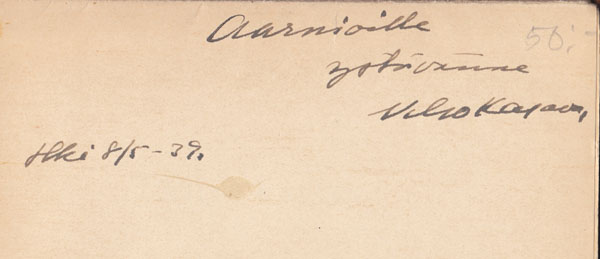 Aarnioille
50:-
ystävänne
Viljo Kajava,
Hki 8/5-39.